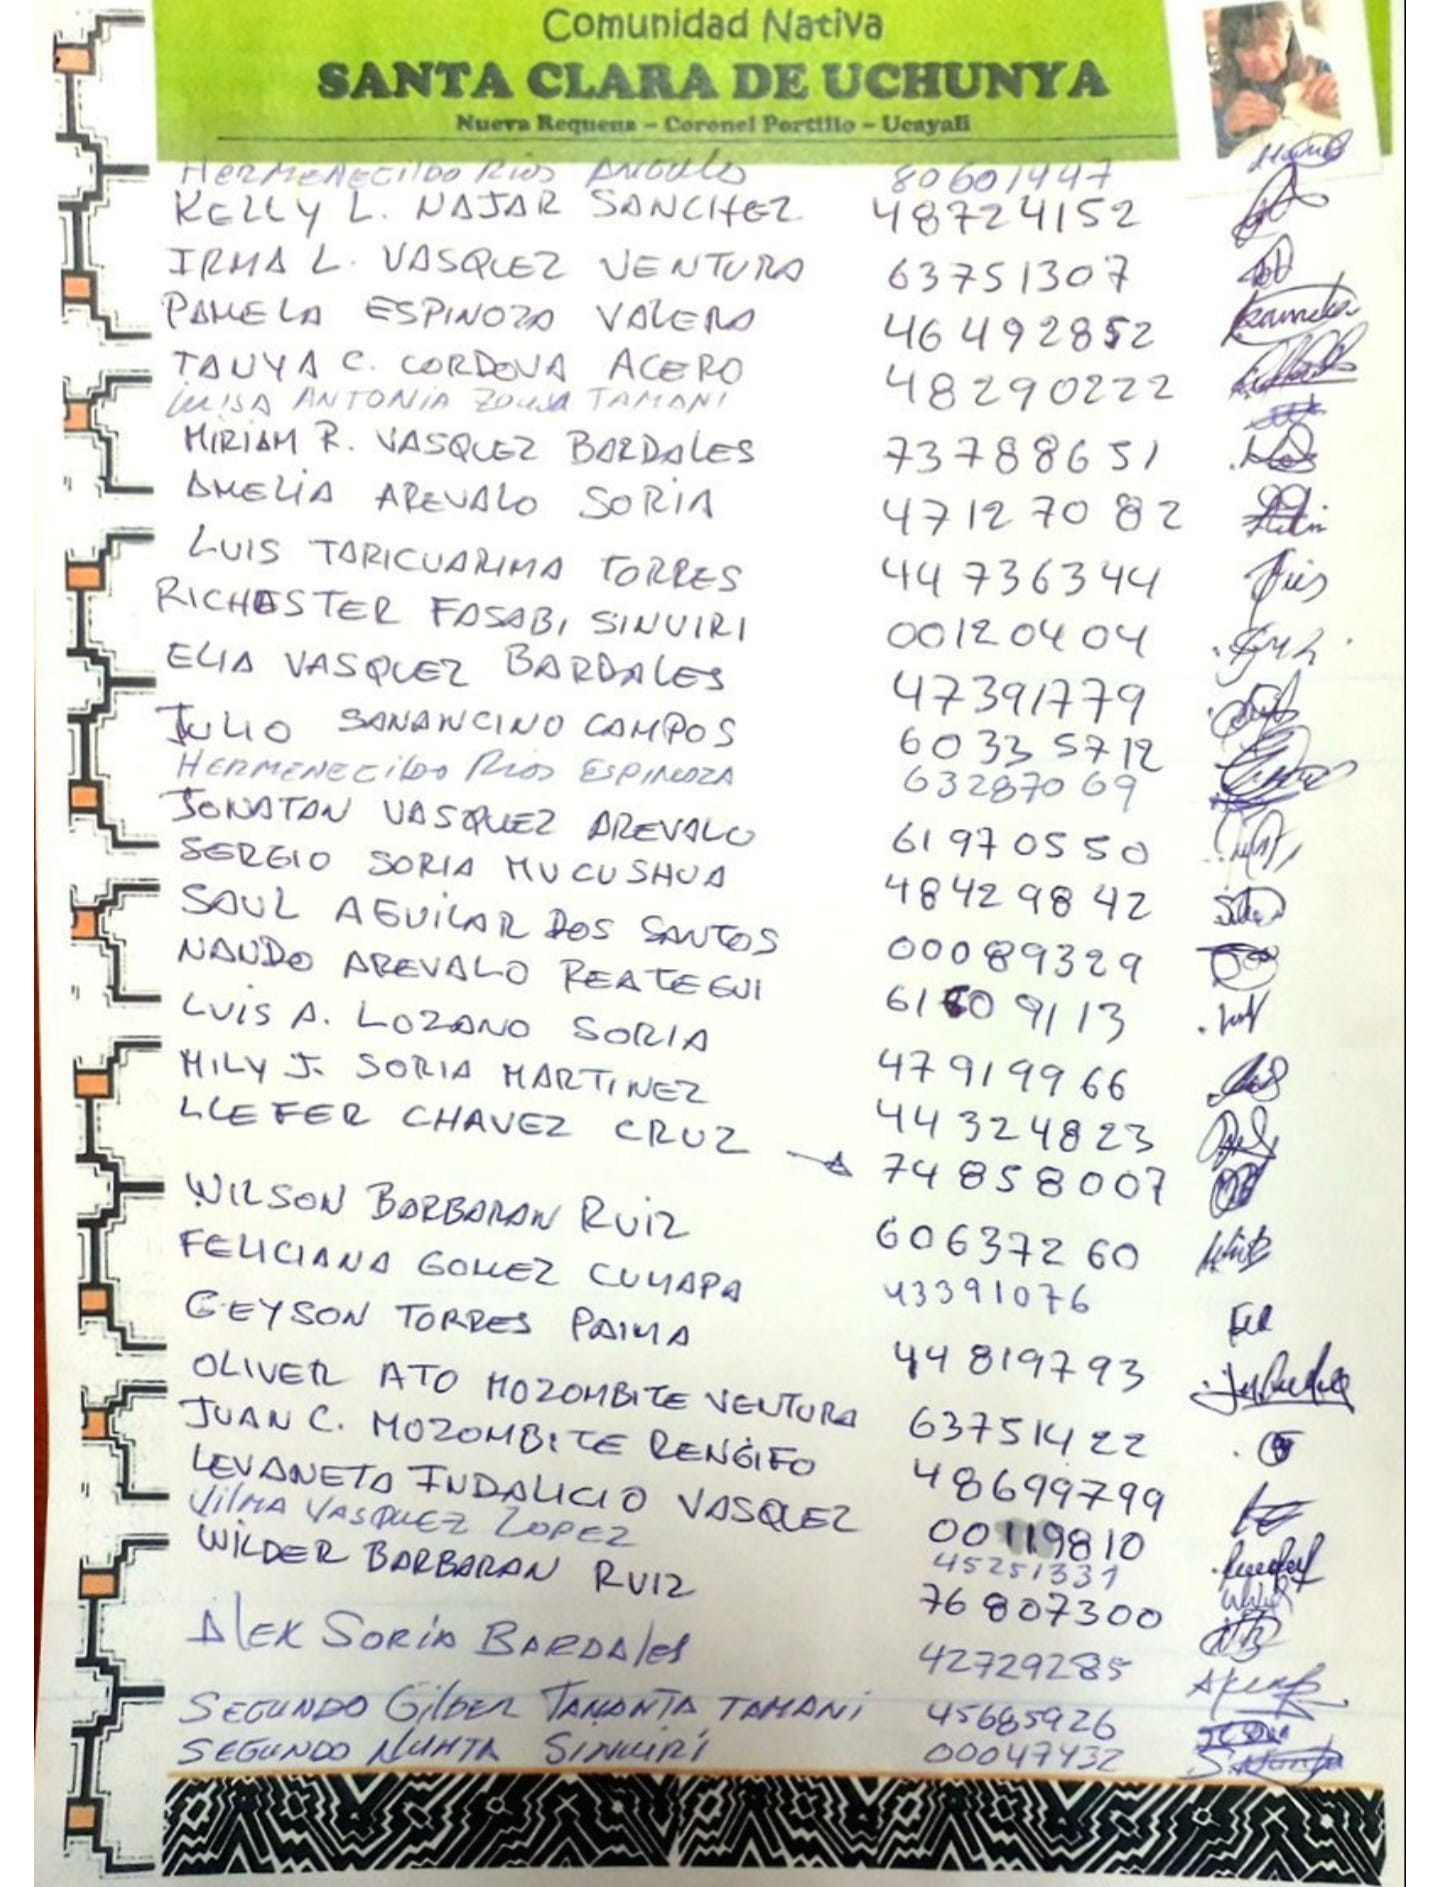 Comunidad Nativa
SANTA CLARA DE UCHUNYA
Nueva Requena - Coronel Portillo - Ucayali
HERMENECILDO RIOS ANGULO 80601447
KELLY L. NAJAR SANCHEZ 48724152
IRMA L. VASQUEZ VENTURA 63751307
PAMELA ESPINOZA VALERA 46492852
TANYA C. CORDOVA ACERO 48290222
LUISA ANTONIA TAMANI
MIRIAM R. VASQUEZ BARDALES 73788651
AMELIA AREVALO SORIA 47127082
LUIS TARICUARIMA TORRES 44736344
RICHESTER FASABI SINUIRI 00120404
ELIA VASQUEZ BARDALES 47391779
JULIO SANANCINO CAMPOS 60335712
HERMENECILDO RIOS ESPINOZA 63287069
JONATAN VASQUEZ AREVALO 61970550
SERGIO SORIA MUCUSHUA 48429842
SAUL AGUILAR DOS SANTOS 00089329
NANDO AREVALO REATEGUI
LUIS A. LOZANO SORIA 47919966
MILY J. SORIA MARTINEZ 44324823
LLEFER CHAVEZ CRUZ 74858007
WILSON BARBARAN RUIZ 60637260
FELICIANA GOMEZ CUMAPA 43391076
GEYSON TORRES PAIMA 44819793
OLIVER ATO MOZOMBITE VENTURA 63751422
JUAN C. MOZOMBITE RENGIFO 48699799
LEVANETA INDALICIO VASQUEZ 00119810
VILMA VASQUEZ LOPEZ 45251331
WILDER BARBARAN RUIZ 76807300
ALEX SORIA BARDALES 42729285
SEGUNDO GILBER TAMANTA TAMANI 45685926
SEGUNDO NUHTA SINUIRI 00047432